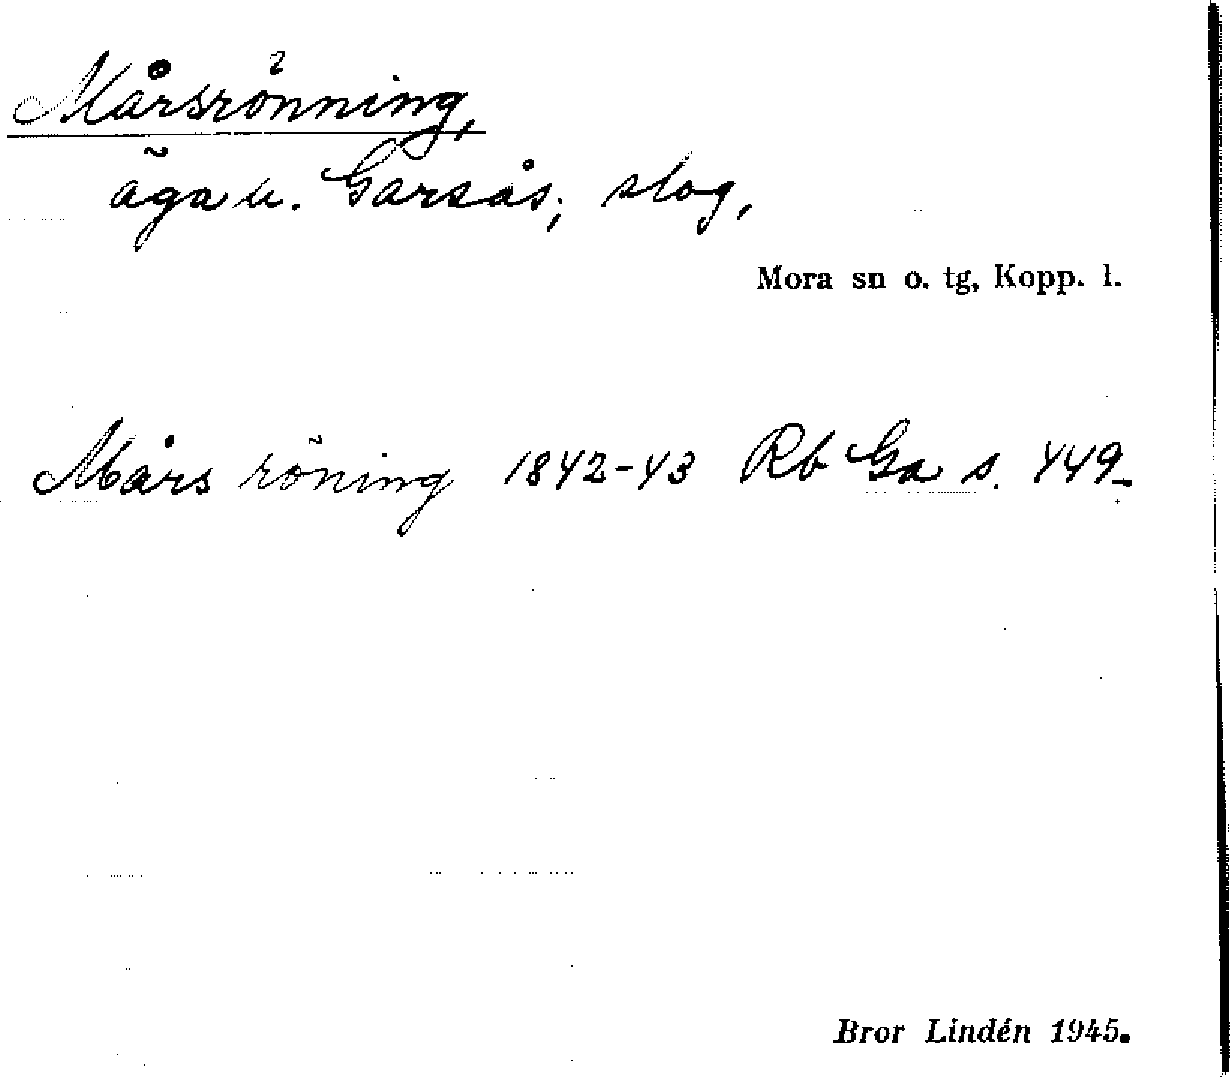 Mårsrönning,
äga u. Garsås; slog,
Mora sn o. tg, Kopp. l.
Mårs röning 1842-43 Rb Ga s. 449.
Bror Lindén 1945.